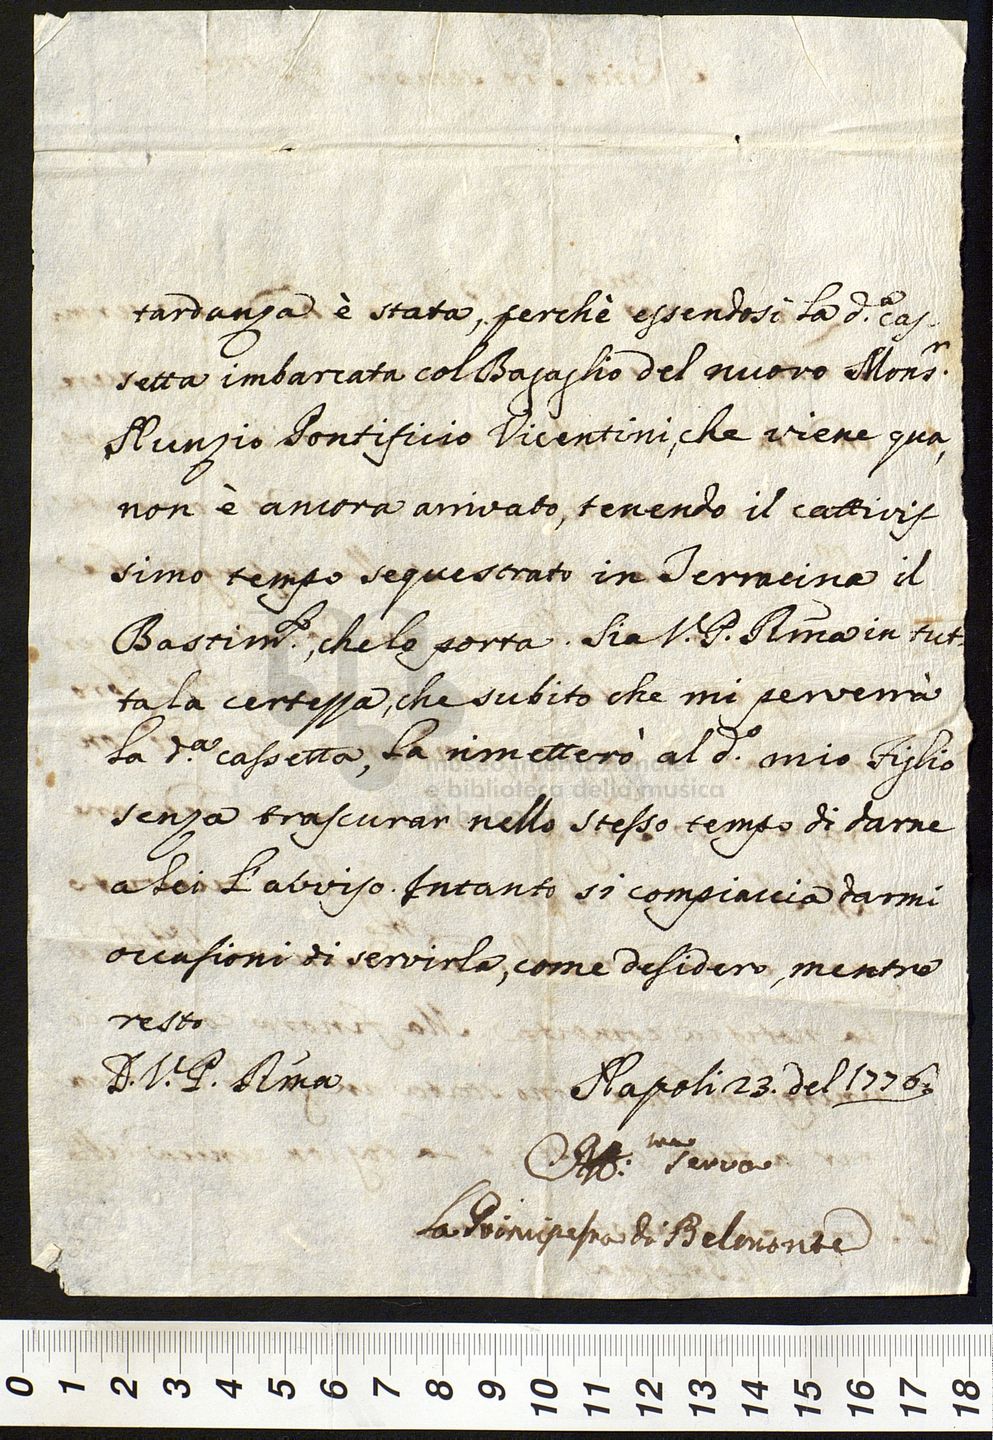 tardanza è stata, perchè essendosi la d.ª cas-
setta imbarcata col Bagaglio del nuovo Mons.r
Nunzio Pontificio Vicentini, che viene qua,
non è ancora arrivato, tenendo il cattivis
simo tempo sequestrato in Terracina il
Bastim.to, che lo porta. Sia V.P. Rma in tut-
ta la certezza, che subito che mi perverrà
la d.ª cassetta, la rimetterò al d.º mio Figlio
senza trascurar nello stesso tempo di darne
a Lei l'avviso. Intanto si compiaccia darmi
occasioni di servirla, come desidero, mentre
resto
D.V.P. Rma
Napoli 23. del 1776.
Aff: ma serva
la Principessa di Belmonte
museo internazionale
e biblioteca della musica
di bologna
0 1 2 3 4 5 6 7 8 9 10 11 12 13 14 15 16 17 18